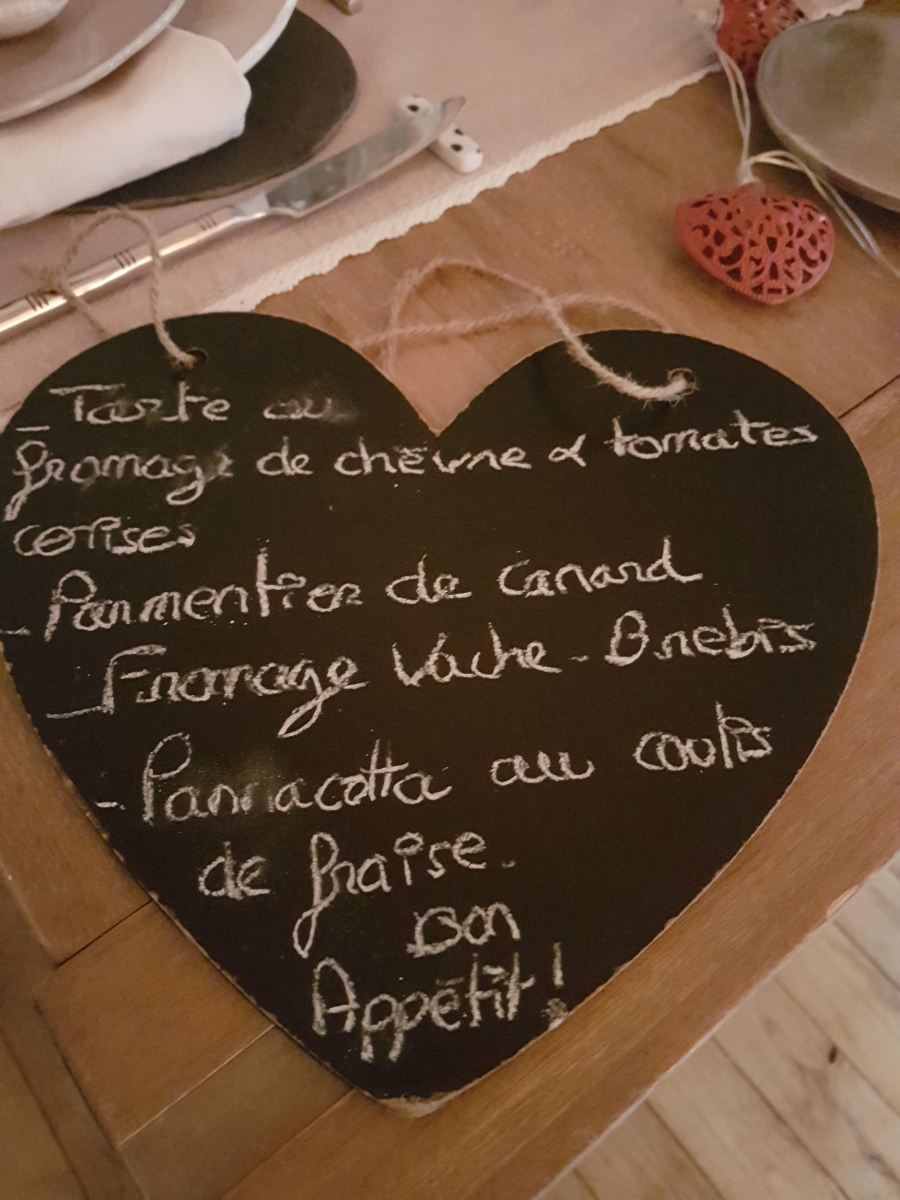 - Tarte au
fromage de chèvre & tomates
cerises
- Parmentier de canard
- Fromage Vache - Brebis
- Pannacotta au coulis
de fraise.
Bon
Appétit !